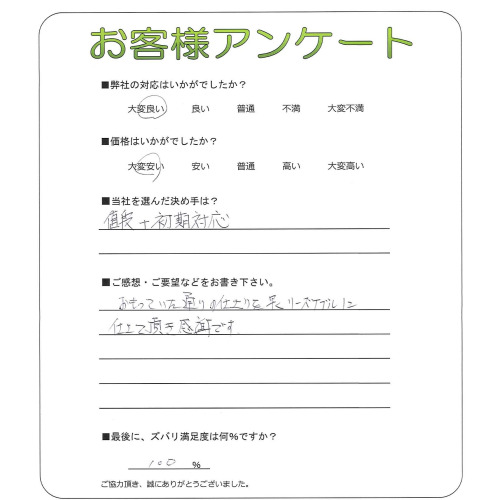 お客様アンケート
■弊社の対応はいかがでしたか?
大変良い 良い 普通 不満 大変不満
■価格はいかがでしたか?
大変安い 安い 普通 高い 大変高い
■当社を選んだ決め手は?
値段+初期対応
■ご感想・ご要望などをお書き下さい。
おもっていた通りの仕上りを リーズナブルに
仕上て頂き感謝です。
■最後に、ズバリ満足度は何%ですか?
100 %
ご協力頂き、誠にありがとうございました。